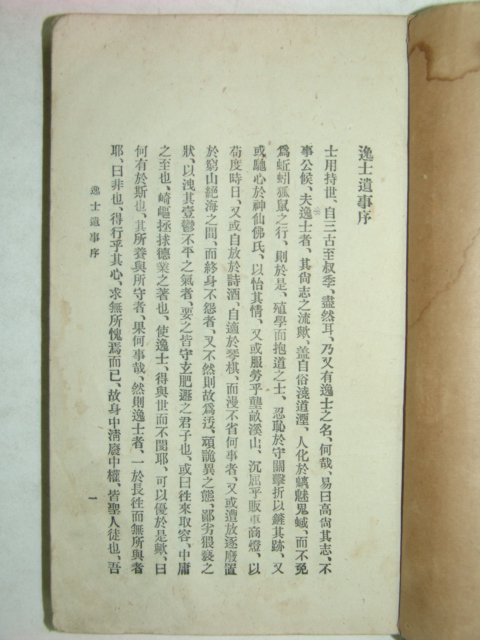 逸士遺事序
士用持世、自三古至叔季、盡然耳、乃又有逸士之名、何哉、易曰高尙其志、不
事公候、夫逸士者、其尙志之流歟、盖自俗淺道湮、人化於螭魅鬼蜮、而不免
爲蚯蚓狐鼠之行、則於是、殖學而抱道之士、忍恥於守關擊折以鏟其跡、又
或馳心於神仙佛氏、以怡其情、又或服勞乎壟畝溪山、沉屈乎販車商燈、以
苟度時日、又或自放於詩酒、自適於琴棋、而漫不省何事者、又或遭放逐廢置
於窮山絕海之間、而終身不怨者、又不然則故爲迂、頑詭異之態、鄙劣猥褻之
狀、以洩其壹鬱不平之氣者、要之皆守玄肥遯之君子也、或曰徃來取容、中庸
之至也、崎嶇拯捄德業之著也、使逸士、得與世而不閔耶、可以優於是歟、曰
何有於斯也、其所養與所守者、果何事哉、然則逸士者、一於長徃而無所與者
耶、曰非也、得行乎其心、求無所愧焉而已、故身中淸廢中權、皆聖人徒也、吾
逸士遺事序
一